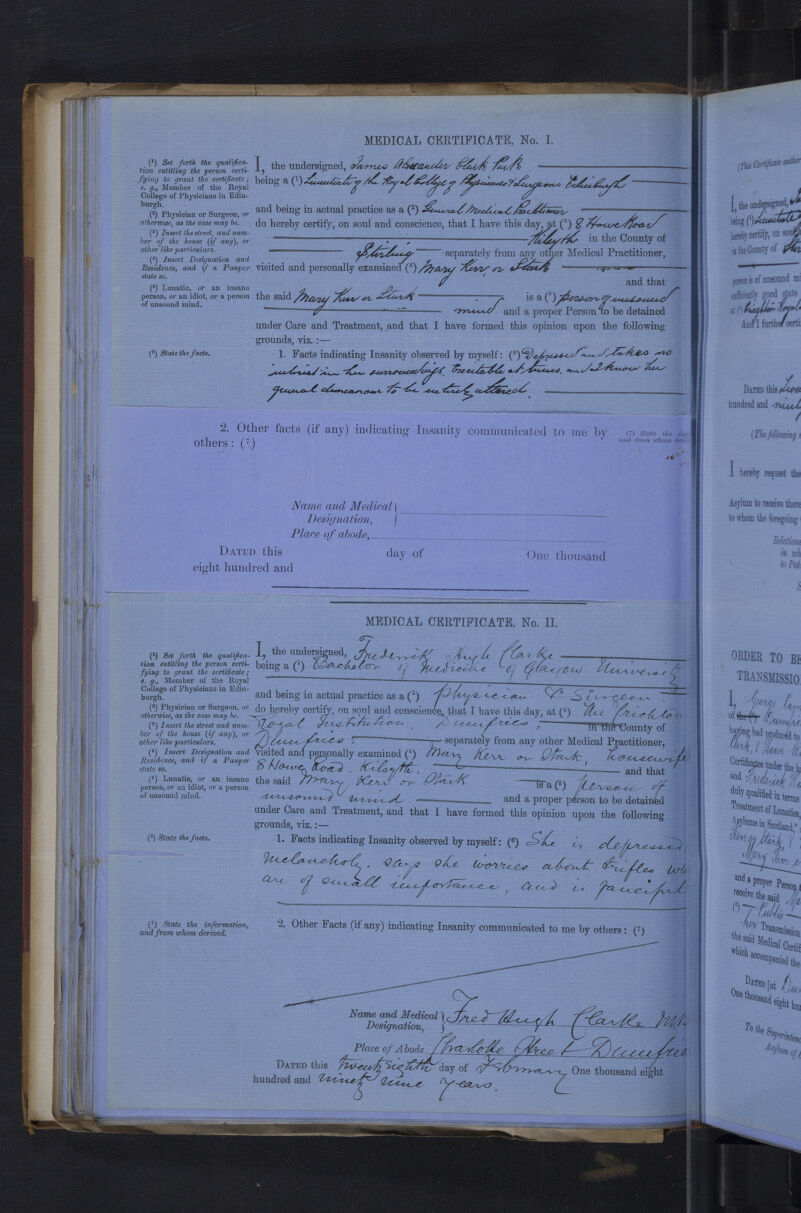 MEDICAL CERTIFICATE, No. I.
(¹) Set forth the qualifica-
tion entitling the person certi-
fying to grant the certificate;
e. g., Member of the Royal
College of Physicians in Edin-
burgh.
(²) Physician or Surgeon, or
otherwise, as the case may be.
(³) Insert the street, and num-
ber of the house (if any), or
other like particulars.
(⁴) Insert Designation and
Residence, and if a Pauper
state so.
(⁵) Lunatic, or an insane
person, or an idiot, or a person
of unsound mind.
I, the undersigned, James Alexander Clark Park
being a (¹) Licentiate of the Royal College of Physicians & Surgeons Edinburgh
and being in actual practice as a (²) General Medical Practitioner
do hereby certify, on soul and conscience, that I have this day, at (³) 8 Howe Road
Kilsyth in the County of
Stirling separately from any other Medical Practitioner,
visited and personally examined (⁴) Mary Kerr or Stark
and that
the said Mary Kerr or Stark is a (⁵) person of unsound
mind and a proper Person to be detained
under Care and Treatment, and that I have formed this opinion upon the following
grounds, viz. :—
(⁶) State the facts.
1. Facts indicating Insanity observed by myself: (⁶) Depressed and takes no
interest in her surroundings. Excitable at times. and I know her
general demeanour to be entirely altered.
2. Other facts (if any) indicating Insanity communicated to me by
others: (⁷)
(⁷) State the
and from whom
Name and Medical
Designation,
Place of abode,
DATED this day of One thousand
eight hundred and
MEDICAL CERTIFICATE, No. II.
(¹) Set forth the qualifica-
tion entitling the person certi-
fying to grant the certificate;
e. g., Member of the Royal
College of Physicians in Edin-
burgh.
(²) Physician or Surgeon, or
otherwise, as the case may be.
(³) Insert the street and num-
ber of the house (if any), or
other like particulars.
(⁴) Insert Designation and
Residence, and if a Pauper
state so.
(⁵) Lunatic, or an insane
person, or an idiot, or a person
of unsound mind.
I, the undersigned, Frederick Hugh Clarke
being a (¹) Bachelor of Medicine of Glasgow University
and being in actual practice as a (²) Physician & Surgeon
do hereby certify, on soul and conscience, that I have this day, at (³) the Crichton
Royal Institution, Dumfries, in the County of
Dumfries, separately from any other Medical Practitioner,
visited and personally examined (⁴) Mary Kerr or Stark, housewife
8 Howe Road. Kilsyth. and that
the said Mary Kerr or Stark is a (⁵) person of
unsound mind and a proper person to be detained
under Care and Treatment, and that I have formed this opinion upon the following
grounds, viz. :—
(⁶) State the facts.
1. Facts indicating Insanity observed by myself: (⁶) She is depressed,
melancholy. says she worries about trifles
are of small importance, and is fanciful
(⁷) State the information,
and from whom derived.
2. Other Facts (if any) indicating Insanity communicated to me by others: (⁷)
Name and Medical
Designation, Fred Hugh Clarke
Place of Abode Charlotte Street Dumfries
DATED this twenty eighth day of February One thousand eight
hundred and ninety nine years.
(This Certificate
I, the undersigned,
being (¹) Licentiate
hereby certify, on soul
in the County of
person is of unsound
sufficiently good state
at (³) Crichton Royal
And I further
DATED this
hundred and
(The following
I hereby request the
Asylum to receive
to whom the foregoing
in
to
ORDER TO
TRANSMISSIO
I, George
having had produced to
Certificates under the
and Frederick
duly qualified in terms
Treatment of Lunatics,
Asylums in Scotland,"
and a proper Person
receive the said
Public
her Transmission
the said Medical
which accompanied the
DATED [at
One thousand eight
To the
Asylum of